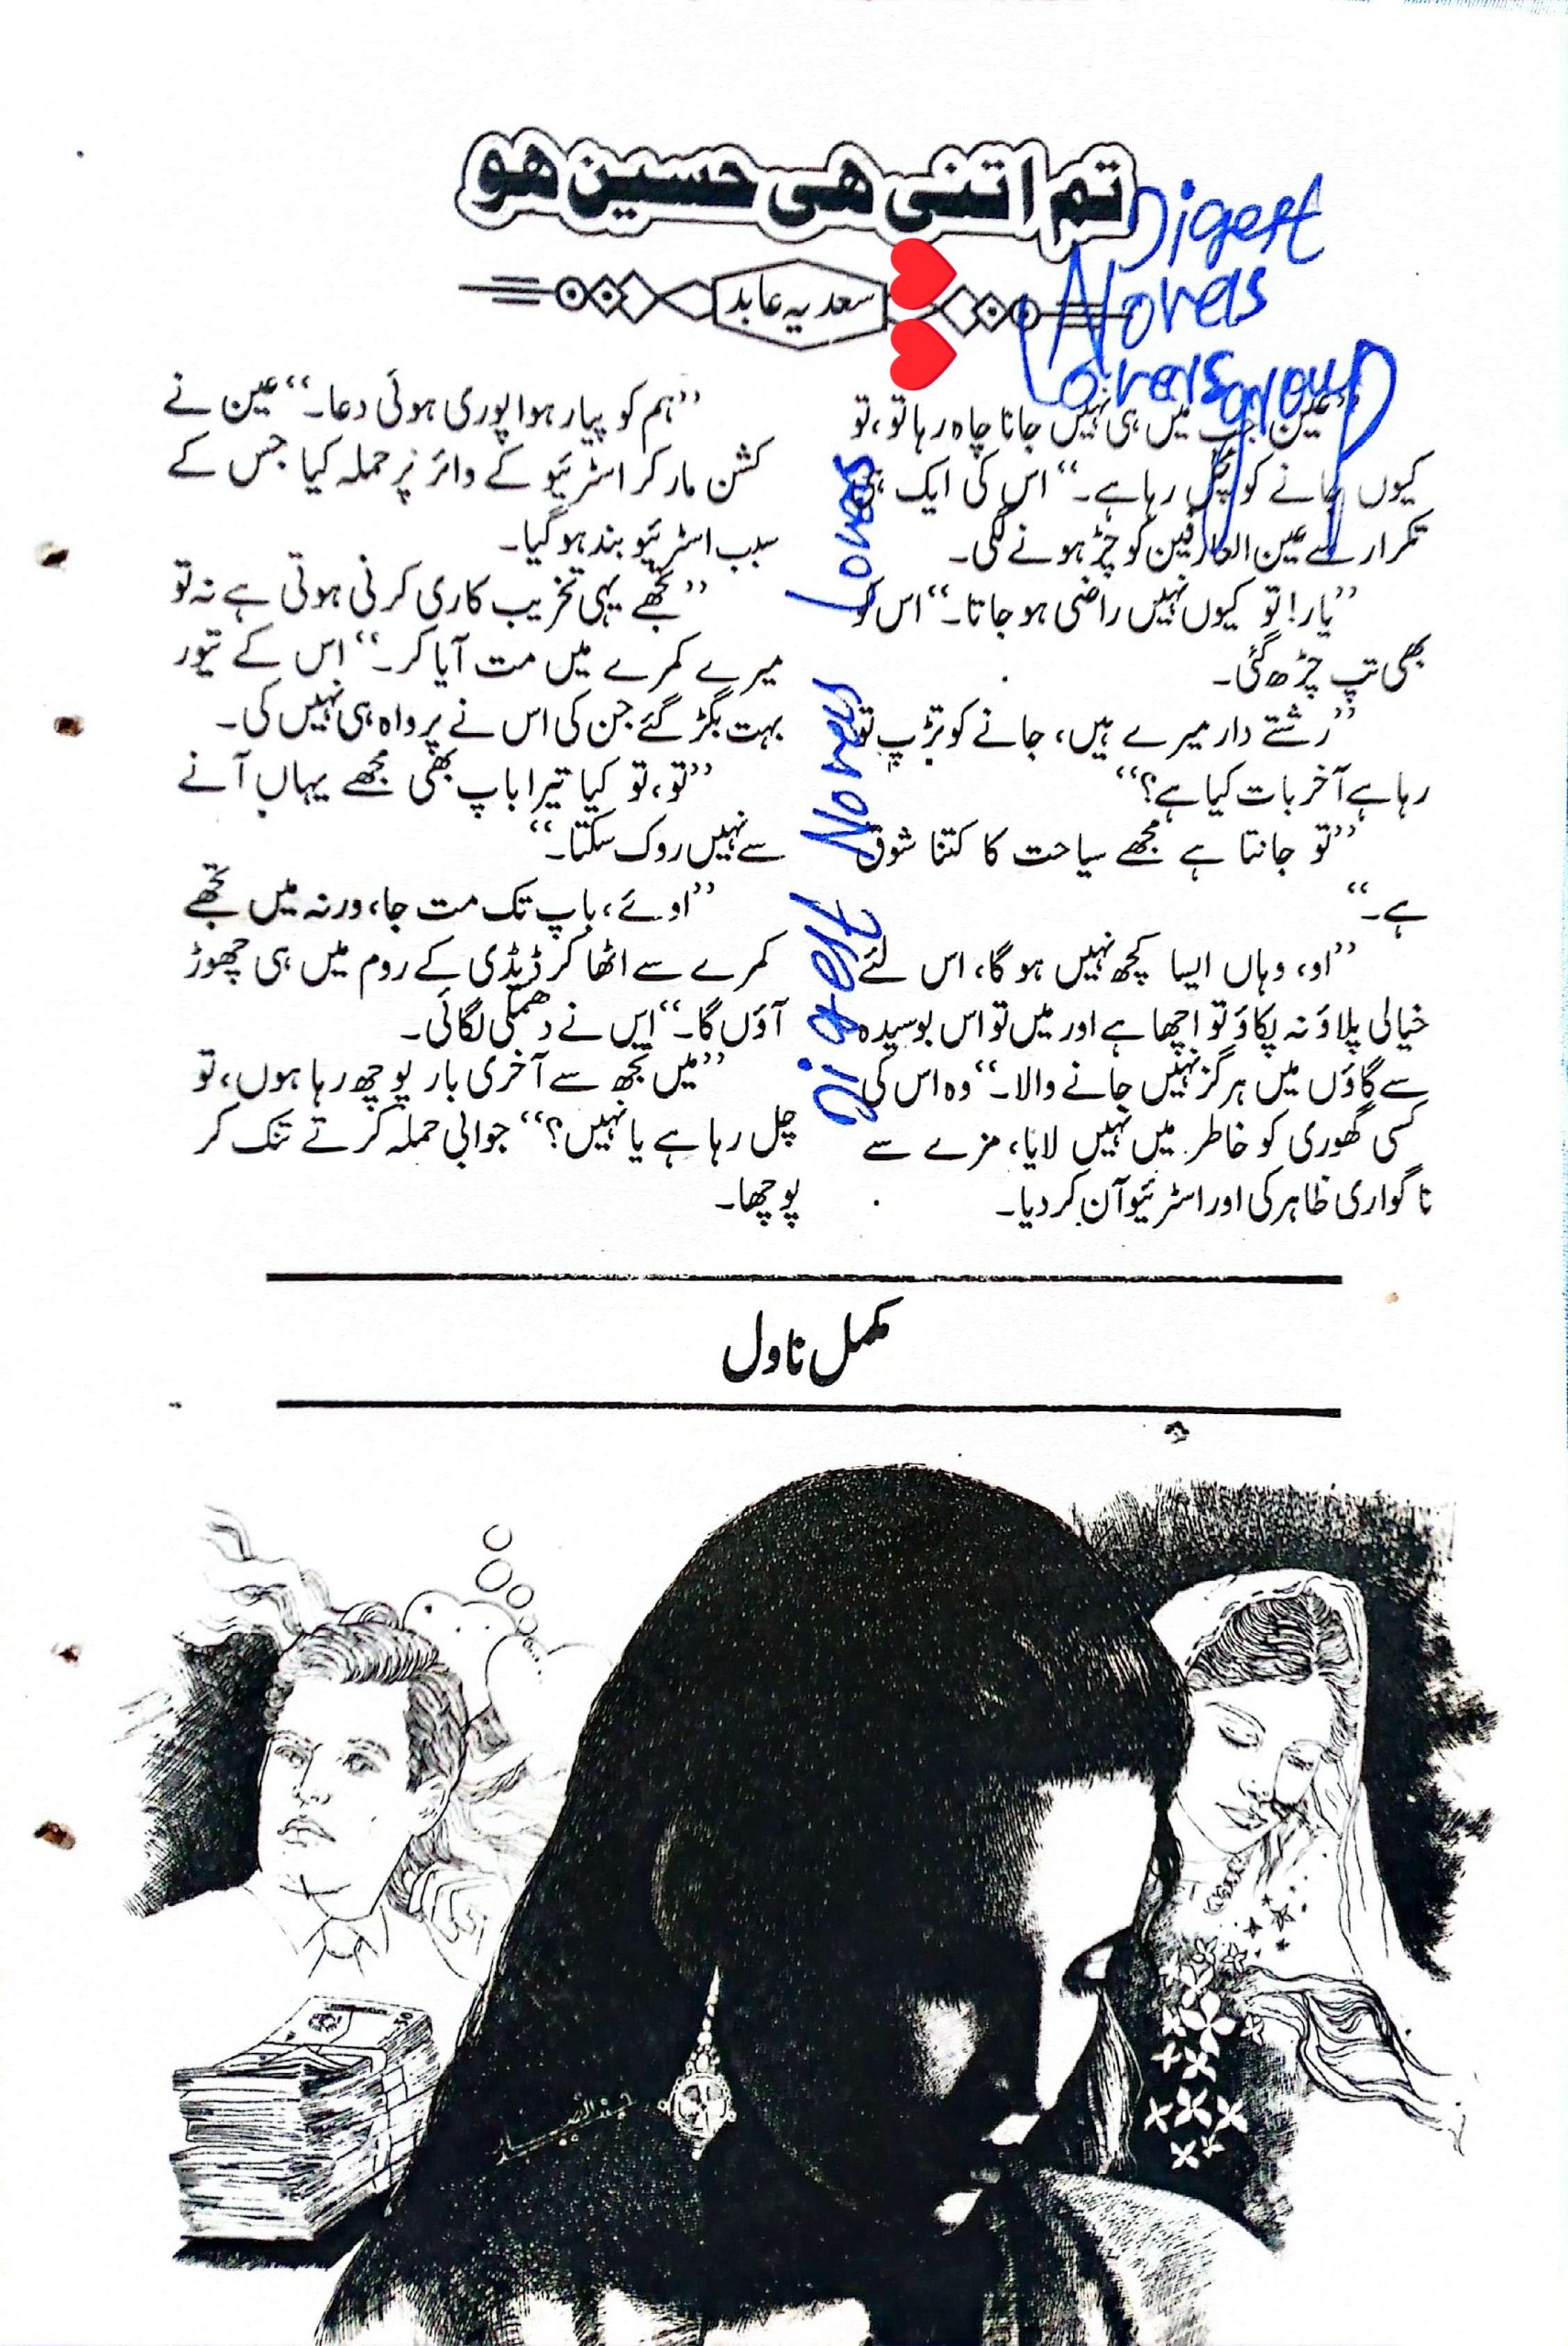 تم اتنی ھی حسین ھو
سعدیہ عابد
Digest
Novels
Lovers group
”عین جب میں ہی نہیں جانا چاہ رہا تو، تو
کیوں جانے کو مچل رہا ہے۔“ اس کی ایک ہی
تکرار سے عین العارفین کو چڑ ہونے لگی۔
”یار! تو کیوں نہیں راضی ہو جاتا۔“ اس کو
بھی تپ چڑھ گئی۔
”رشتے دار میرے ہیں، جانے کو تڑپ تو
رہا ہے آخر بات کیا ہے؟“
”تو جانتا ہے مجھے سیاحت کا کتنا شوق
ہے۔“
”او، وہاں ایسا کچھ نہیں ہو گا، اس لئے
خیالی پلاؤ نہ پکاؤ تو اچھا ہے اور میں تو اس بوسیدہ
سے گاؤں میں ہرگز نہیں جانے والا۔“ وہ اس کی
کسی گھوری کو خاطر میں نہیں لایا، مزے سے
ناگواری ظاہر کی اور اسٹریو آن کر دیا۔
”ہم کو پیار ہوا پوری ہوئی دعا۔“ عین نے
کشن مار کر اسٹریو کے وائر پر حملہ کیا جس کے
سبب اسٹریو بند ہو گیا۔
”تجھے یہی تخریب کاری کرنی ہوتی ہے نہ تو
میرے کمرے میں مت آیا کر۔“ اس کے تیور
بہت بگڑ گئے جن کی اس نے پرواہ ہی نہیں کی۔
”تو، تو کیا تیرا باپ بھی مجھے یہاں آنے
سے نہیں روک سکتا۔“
”اوئے، باپ تک مت جا، ورنہ میں تجھے
کمرے سے اٹھا کر ڈیڈی کے روم میں ہی چھوڑ
آؤں گا۔“ اس نے دھمکی لگائی۔
”میں تجھ سے آخری بار پوچھ رہا ہوں، تو
چل رہا ہے یا نہیں؟“ جوابی حملہ کرتے تنک کر
پوچھا۔
Digest Novels Lovers
مکمل ناول